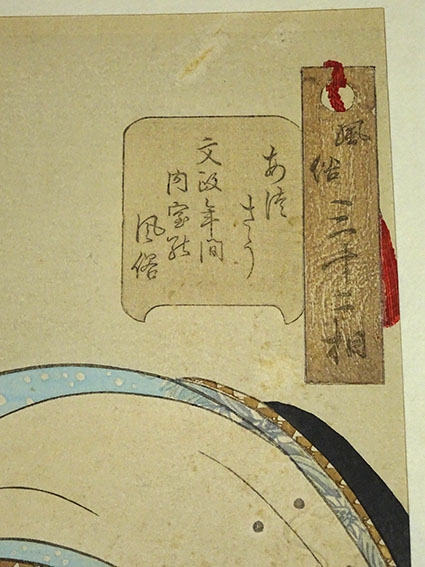 風俗三十二相
あつさう
文政年間
内室の
風俗